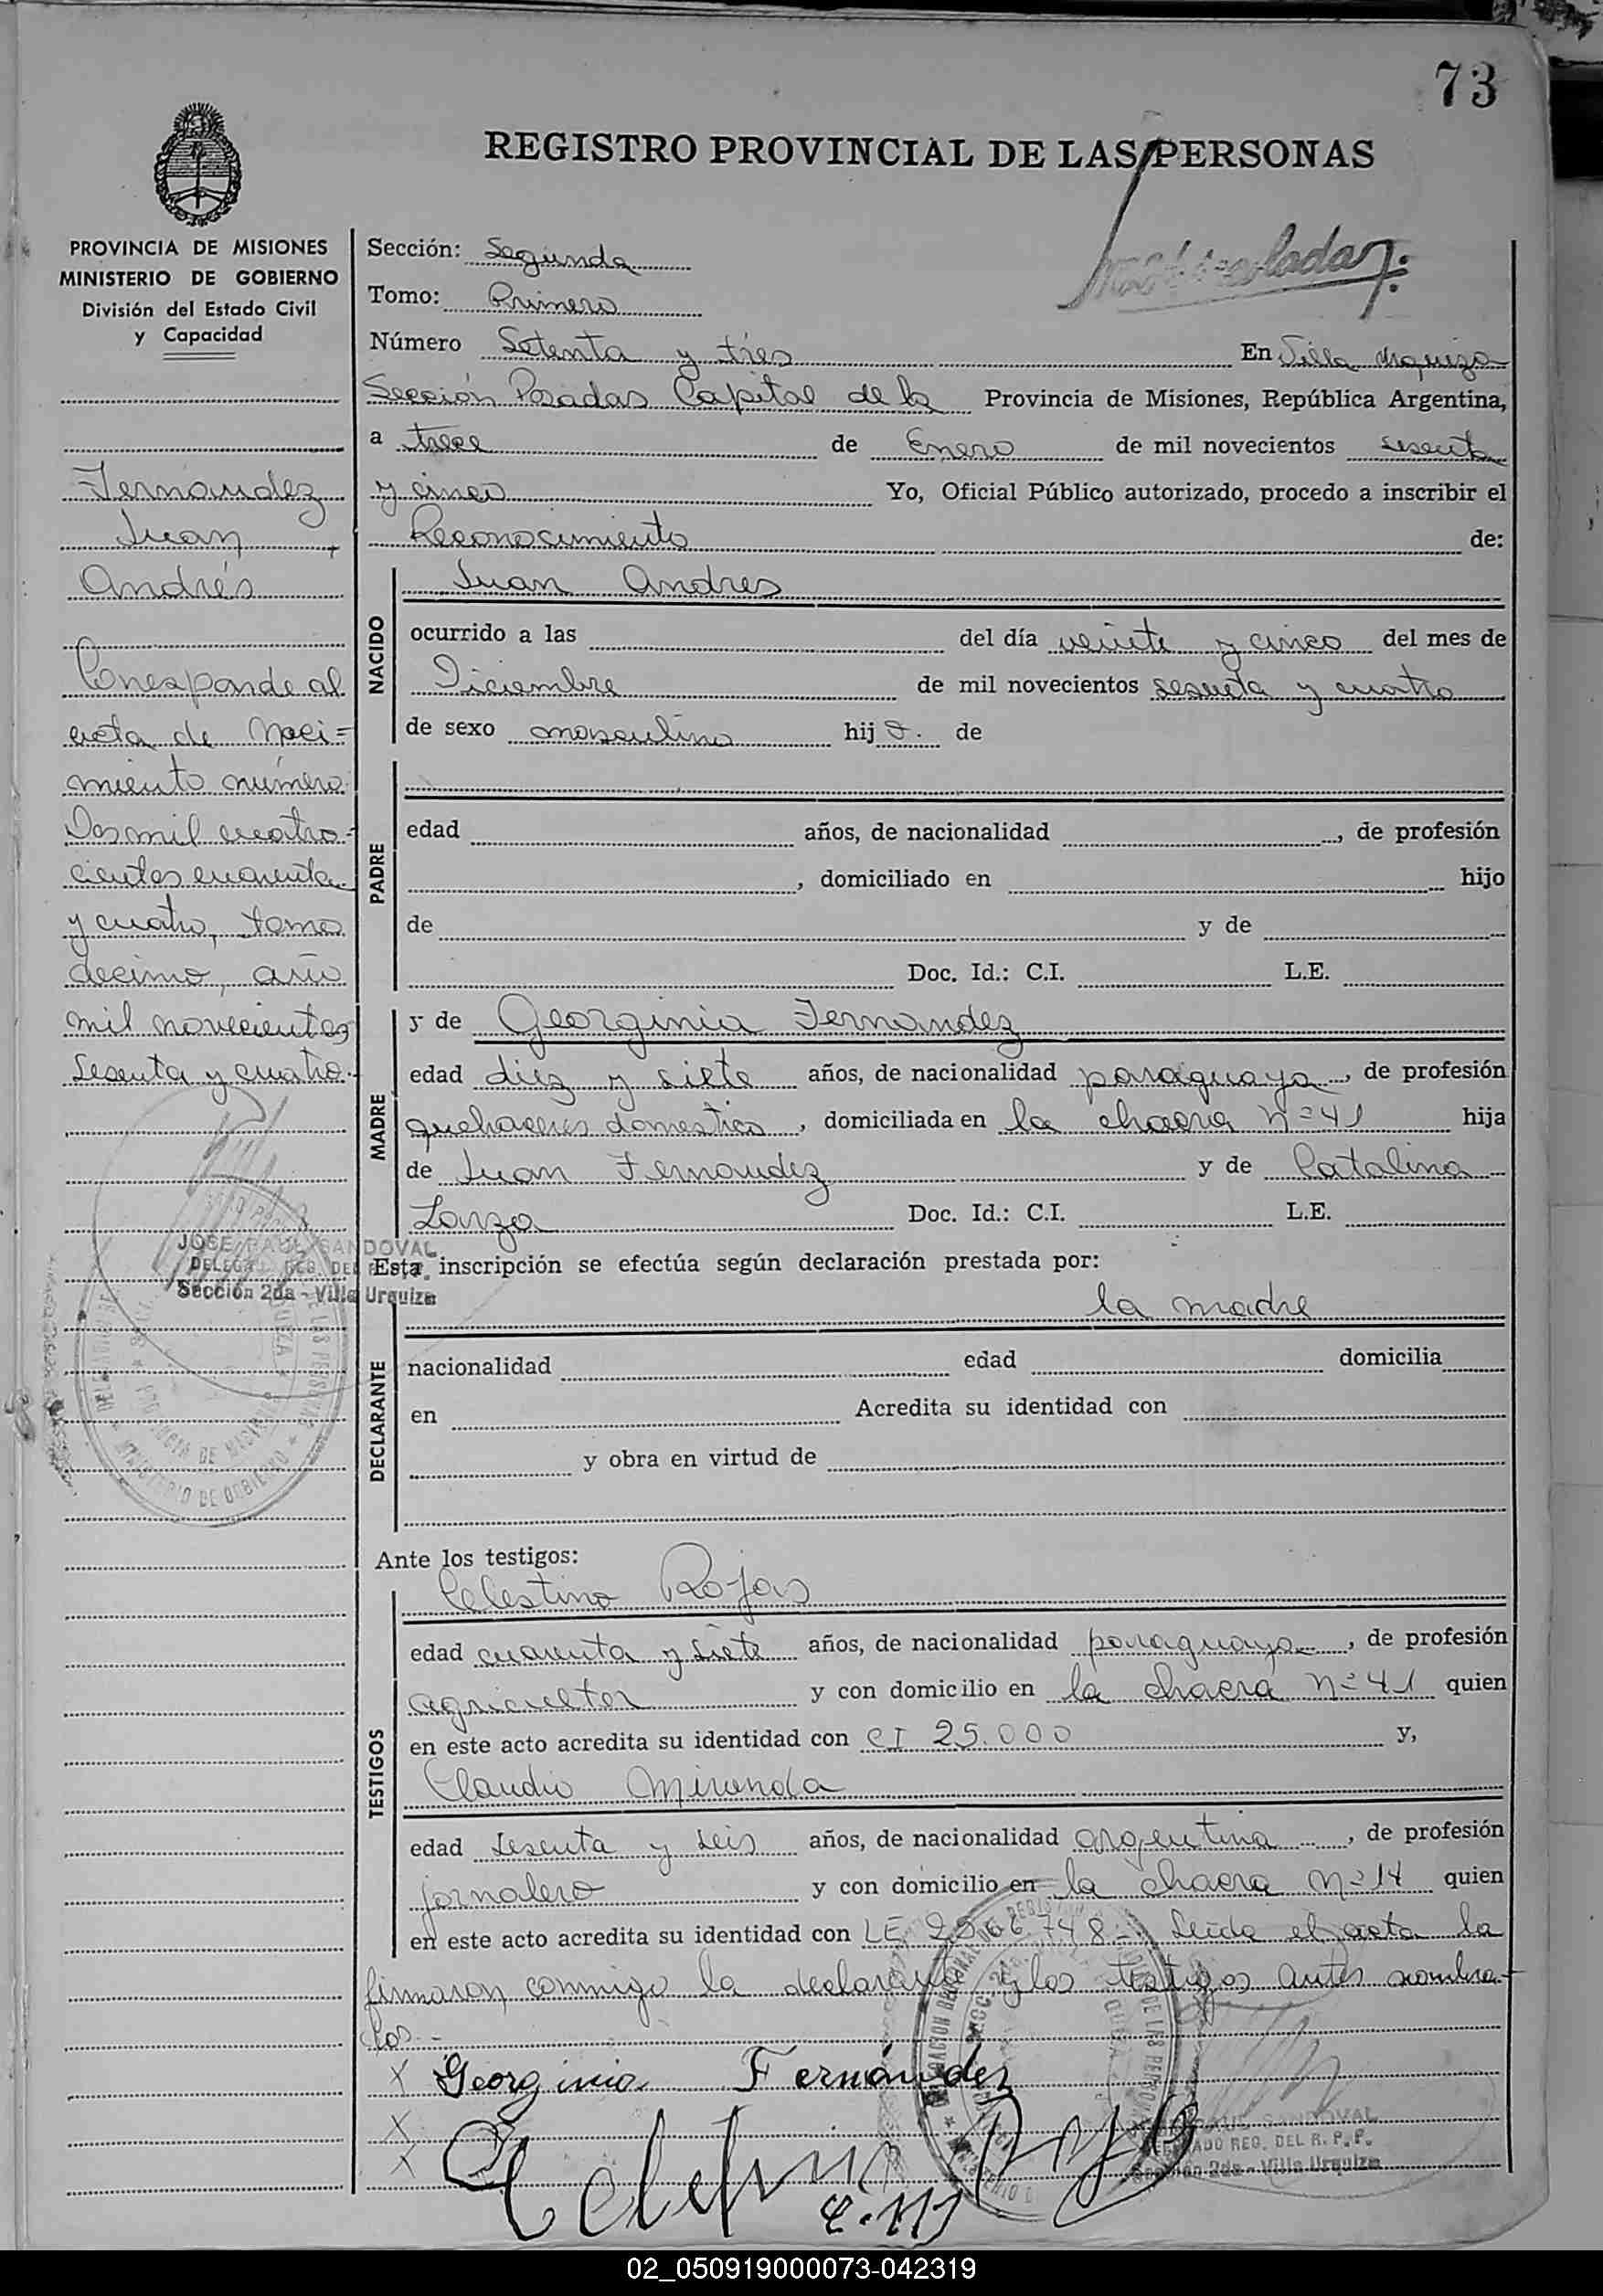 73
REGISTRO PROVINCIAL DE LAS PERSONAS
PROVINCIA DE MISIONES
MINISTERIO DE GOBIERNO
División del Estado Civil
y Capacidad
Fernandez
Juan
Andrés
Corresponde al
acta de Naci=
miento número
Dos mil cuatro-
cientos cuarenta
y cuatro, tomo
decimo, año
mil novecientos
sesenta y cuatro.-
JOSE RAUL SANDOVAL
DELEGADO REG. DEL R.P.P.
Sección 2da - Villa Urquiza
Sección: Segunda
Tomo: Primero
Número Setenta y tres En Villa Urquiza
Sección Posadas Capital de la Provincia de Misiones, República Argentina,
a trece de Enero de mil novecientos sesenta
y cinco Yo, Oficial Público autorizado, procedo a inscribir el
Reconocimiento de:
NACIDO
Juan Andres
ocurrido a las del día veinte y cinco del mes de
Diciembre de mil novecientos sesenta y cuatro
de sexo masculino hijo. de
PADRE
edad años, de nacionalidad , de profesión
, domiciliado en hijo
de y de
Doc. Id.: C.I. L.E.
MADRE
y de Georginia Fernandez
edad diez y siete años, de nacionalidad paraguaya, de profesión
quehaceres domestico, domiciliada en la chacra nº 41 hija
de Juan Fernandez y de Catalina
Doc. Id.: C.I. L.E.
Esta inscripción se efectúa según declaración prestada por:
DECLARANTE
la madre
nacionalidad edad domicilia
en Acredita su identidad con
y obra en virtud de
Ante los testigos:
TESTIGOS
Celestino Rojas
edad cuarenta y siete años, de nacionalidad paraguaya, de profesión
agricultor y con domicilio en la chacra nº 41 quien
en este acto acredita su identidad con CI 25.000 y,
Claudio Miranda
edad sesenta y seis años, de nacionalidad argentina, de profesión
jornalero y con domicilio en la chacra nº 14 quien
en este acto acredita su identidad con LE 748- Leida el acta la
firmaron conmigo la declarante y los testigos antes nombra-
dos.-
X Georginia Fernández
X
X
SANDOVAL
DELEGADO REG. DEL R.P.P.
Sección 2da - Villa Urquiza
02_050919000073-042319